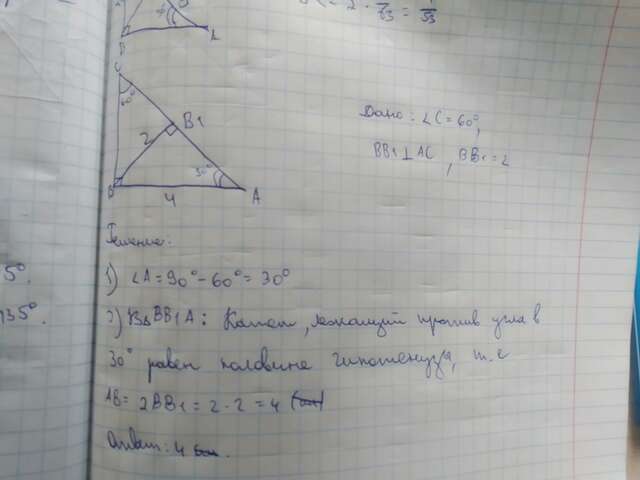 C
60°
2
B1
30°
B
4
A
Дано: ∠C=60°,
BB1⊥AC, BB1=2
Решение:
5°.
1) ∠A=90°-60°=30°
35°.
2) В ΔBB1A: Катет, лежащий против угла в
30° равен половине гипотенуза, т.е
AB=2BB1=2·2=4 (см)
Ответ: 4 см.